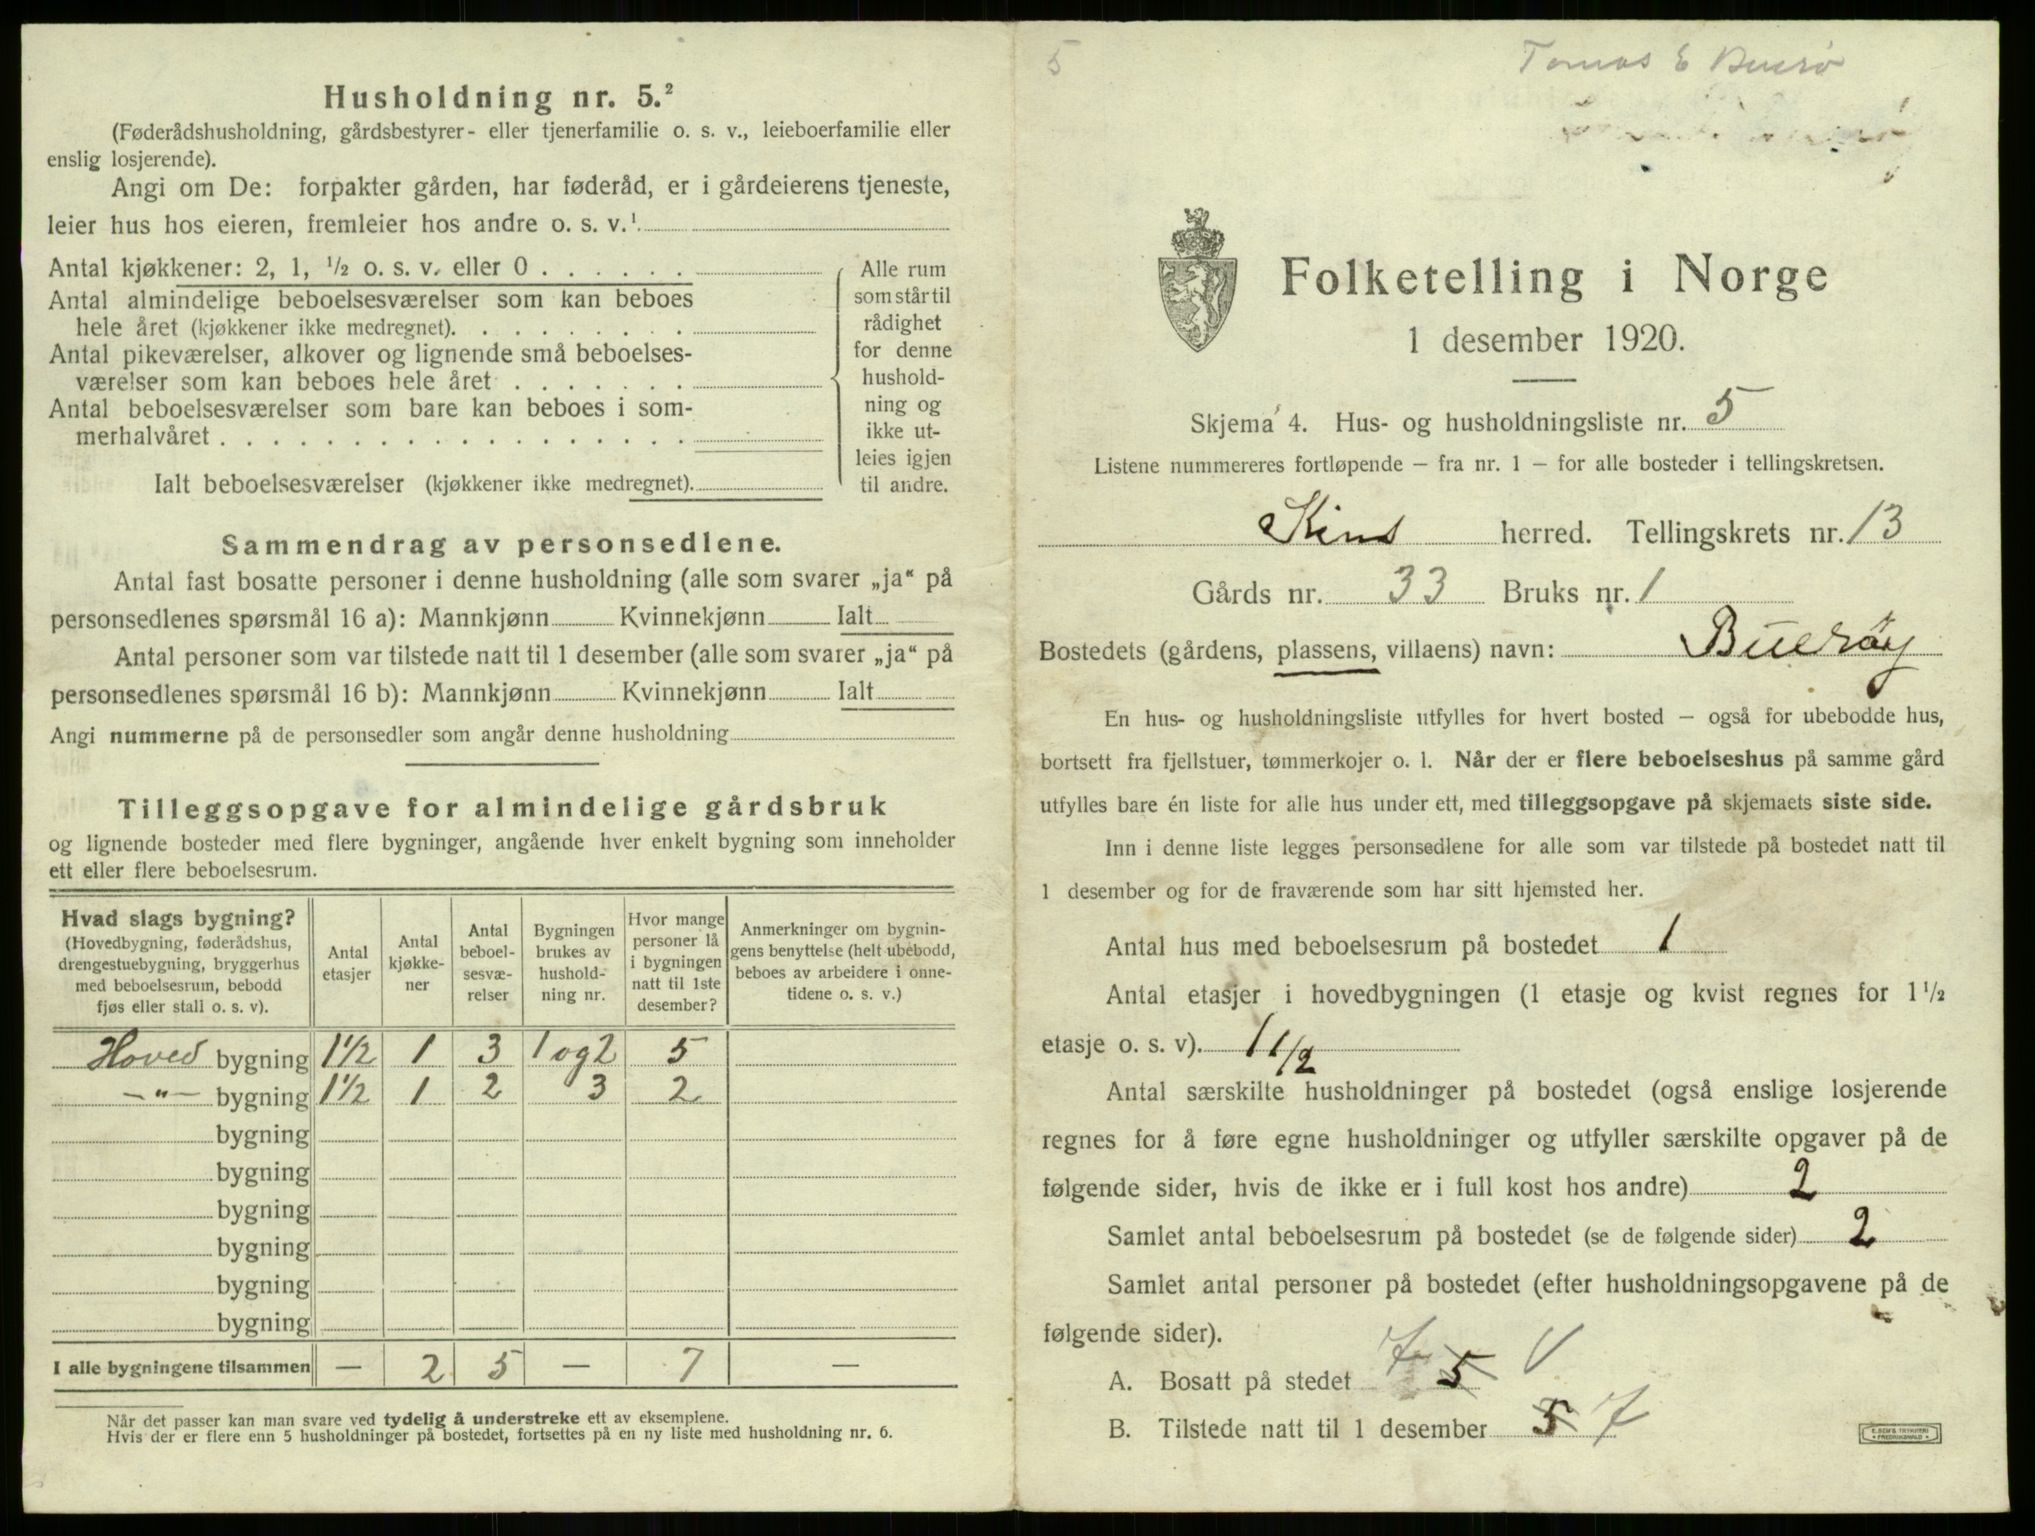 Husholdning nr. 5.²
(Føderådshusholdning, gårdsbestyrer- eller tjenerfamilie o. s. v., leieboerfamilie eller
enslig losjerende).
Angi om De: forpakter gården, har føderåd, er i gårdeierens tjeneste,
leier hus hos eieren, fremleier hos andre o. s. v.¹
Antal kjøkkener: 2, 1, ½ o. s. v. eller 0 . . . . . .
Antal almindelige beboelsesværelser som kan beboes
hele året (kjøkkener ikke medregnet). . . . . . . . .
Antal pikeværelser, alkover og lignende små beboelses-
værelser som kan beboes hele året . . . . . . .
Antal beboelsesværelser som bare kan beboes i som-
merhalvåret . . . . . . . . . . . . . . . . . .
Ialt beboelsesværelser (kjøkkener ikke medregnet).
Alle rum
som står til
rådighet
for denne
hushold-
ning og
ikke ut-
leies igjen
til andre.
Sammendrag av personsedlene.
Antal fast bosatte personer i denne husholdning (alle som svarer „ja“ på
personsedlenes spørsmål 16 a): Mannkjønn Kvinnekjønn Ialt
Antal personer som var tilstede natt til 1 desember (alle som svarer „ja“ på
personsedlenes spørsmål 16 b): Mannkjønn Kvinnekjønn Ialt
Angi nummerne på de personsedler som angår denne husholdning
Tilleggsopgave for almindelige gårdsbruk
og lignende bosteder med flere bygninger, angående hver enkelt bygning som inneholder
ett eller flere beboelsesrum.
Hvad slags bygning?
(Hovedbygning, føderådshus,
drengestuebygning, bryggerhus
med beboelsesrum, bebodd
fjøs eller stall o. s. v).
Antal
etasjer
Antal
kjøkke-
ner
Antal
beboel-
sesvæ-
relser
Bygningen
brukes av
hushold-
ning nr.
Hvor mange
personer lå
i bygningen
natt til 1ste
desember?
Anmerkninger om bygnin-
gens benyttelse (helt ubebodd,
beboes av arbeidere i onne-
tidene o. s. v.)
Hoved bygning 1½ 1 3 1 og 2 5
—„— bygning 1½ 1 2 3 2
bygning
bygning
bygning
bygning
bygning
bygning
I alle bygningene tilsammen — 2 5 — 7 —
Når det passer kan man svare ved tydelig å understreke ett av eksemplene.
Hvis der er flere enn 5 husholdninger på bostedet, fortsettes på en ny liste med husholdning nr. 6.
5
Tomas E Buerø
Folketelling i Norge
1 desember 1920.
Skjema 4. Hus- og husholdningsliste nr. 5
Listene nummereres fortløpende — fra nr. 1 — for alle bosteder i tellingskretsen.
Kinn herred. Tellingskrets nr. 13
Gårds nr. 33 Bruks nr. 1
Bostedets (gårdens, plassens, villaens) navn: Buerøy
En hus- og husholdningsliste utfylles for hvert bosted — også for ubebodde hus,
bortsett fra fjellstuer, tømmerkojer o. l. Når der er flere beboelseshus på samme gård
utfylles bare én liste for alle hus under ett, med tilleggsopgave på skjemaets siste side.
Inn i denne liste legges personsedlene for alle som var tilstede på bostedet natt til
1 desember og for de fraværende som har sitt hjemsted her.
Antal hus med beboelsesrum på bostedet 1
Antal etasjer i hovedbygningen (1 etasje og kvist regnes for 1½
etasje o. s. v). 1 1/2
Antal særskilte husholdninger på bostedet (også enslige losjerende
regnes for å føre egne husholdninger og utfyller særskilte opgaver på de
følgende sider, hvis de ikke er i full kost hos andre) 2
Samlet antal beboelsesrum på bostedet (se de følgende sider) 2
Samlet antal personer på bostedet (efter husholdningsopgavene på de
følgende sider).
A. Bosatt på stedet 7 5 V
B. Tilstede natt til 1 desember 5 7
E. SEM'S TRYKKERI
FREDRIKSHALD